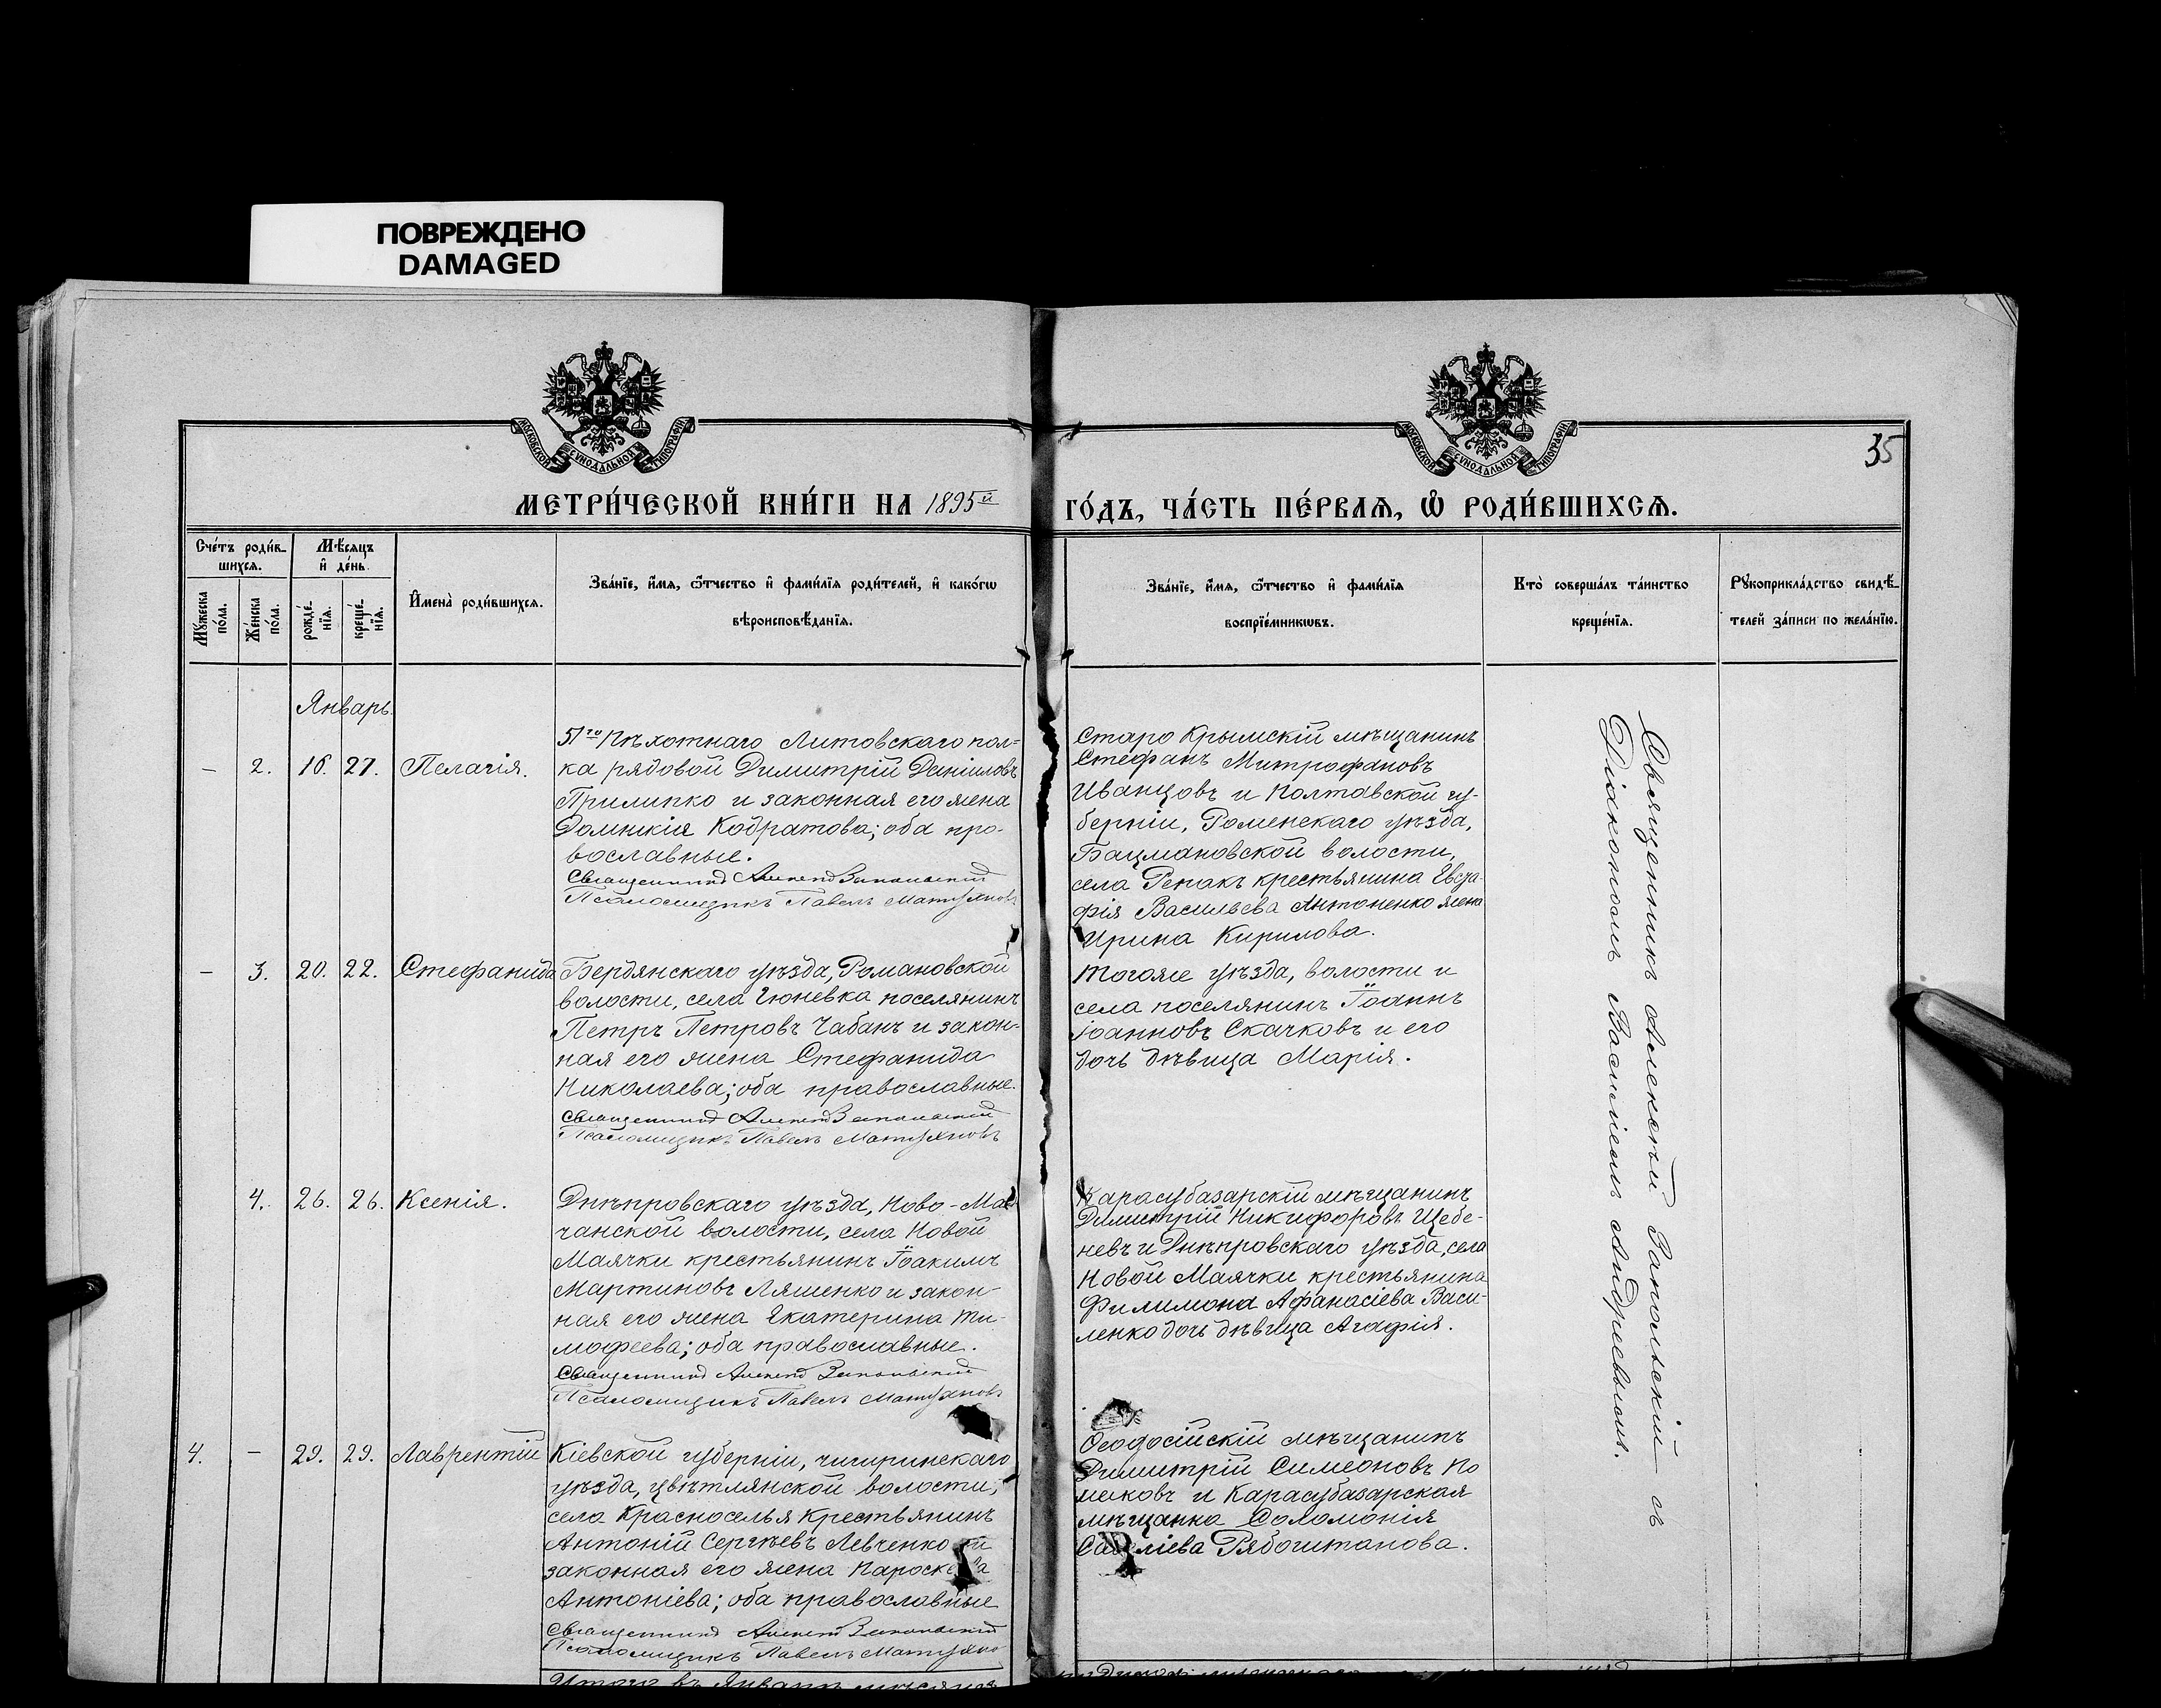 ПОВРЕЖДЕНО
DAMAGED
МОСКОВСКОЙ СѴНОДАЛЬНОЙ ТИПОГРАФІИ
МОСКОВСКОЙ СѴНОДАЛЬНОЙ ТИПОГРАФІИ
35
МЕТРИ́ЧЕСКОЙ КНИ́ГИ НА 1895й
ГО́ДЪ, ЧА́СТЬ ПЕ́РВАѦ, Ѡ҆ РОДИ́ВШИХСѦ.
Сче́тъ роди́в-
шихсѧ.
Мꙋ́жеска по́ла.
Же́нска по́ла.
Мѣ́сѧцъ
и҆ де́нь.
рожде́-
нїѧ.
креще́-
нїѧ.
И҆мена̀ роди́вшихсѧ.
Зва́нїе, и҆́мѧ, ѻ҆́тчество и҆ фами́лїѧ роди́телей, и҆ како́гѡ
вѣроисповѣ́данїѧ.
Зва́нїе, и҆́мѧ, ѻ҆́тчество и҆ фами́лїѧ
воспрїе́мникѡвъ.
Кто̀ соверша́лъ та́инство
креще́нїѧ.
Рꙋкоприкла́дство свидѣ́-
телей за́писи по жела́нїю.
Январь.
— 2. 16. 27. Пелагія.
51го Пѣхотнаго Литовскаго пол-
ка рядовой Димитрій Даніиловъ
Прилипко и законная его жена
Домникія Кодратова; оба пра-
вославные.
Священникъ Алексѣй Запольскій
Псаломщикъ Павелъ
Старо Крымскій мѣщанинъ
Стефанъ Митрофановъ
Иванцовъ и Полтавской гу-
берніи, Роменскаго уѣзда,
Бацмановской волости,
села Репакъ крестьянина Евста-
фія Васильева Антоненко жена
Ирина Кирилова.
— 3. 20. 22. Стефанида
Бердянскаго уѣзда, Романовской
волости, села Гюневка поселянинъ
Петръ Петровъ Чабанъ и закон-
ная его жена Стефанида
Николаева; оба православные.
Священникъ Алексѣй Запольскій
Псаломщикъ Павелъ
Тогоже уѣзда, волости и
села поселянинъ Іоаннъ
Іоанновъ Скачковъ и его
дочь дѣвица Марія.
4. 26. 26. Ксенія.
Днѣпровскаго уѣзда, Ново-Мая-
чанской волости, села Новой
Маячки крестьянинъ Іоакимъ
Мартиновъ Ляшенко и закон-
ная его жена Екатерина Ти-
мофеева; оба православные.
Священникъ Алексѣй Запольскій
Псаломщикъ Павелъ
Карасубазарскій мѣщанинъ
Димитрій Никифоровъ Щебе-
невъ и Днѣпровскаго уѣзда, села
Новой Маячки крестьянина
Филимона Афанасіева Васи-
ленко дочь дѣвица Агафія.
4. — 29. 29. Лаврентій
Кіевской губерніи, чигиринскаго
уѣзда, цвѣтлянской волости,
села Красноселья крестьянинъ
Антоній Сергѣевъ Левченко и
законная его жена Пароскева
Антоніева; оба православные
Священникъ Алексѣй Запольскій
Псаломщикъ Павелъ
Ѳеодосійскій мѣщанинъ
Димитрій Симеоновъ
и Карасубазарская
мѣщанка Соломонія
Савеліева Рябоштанова.
Священникъ Алексѣй Запольскій съ
Діакономъ Василіемъ Андреевымъ.
Итого въ Январѣ мѣсяцѣ